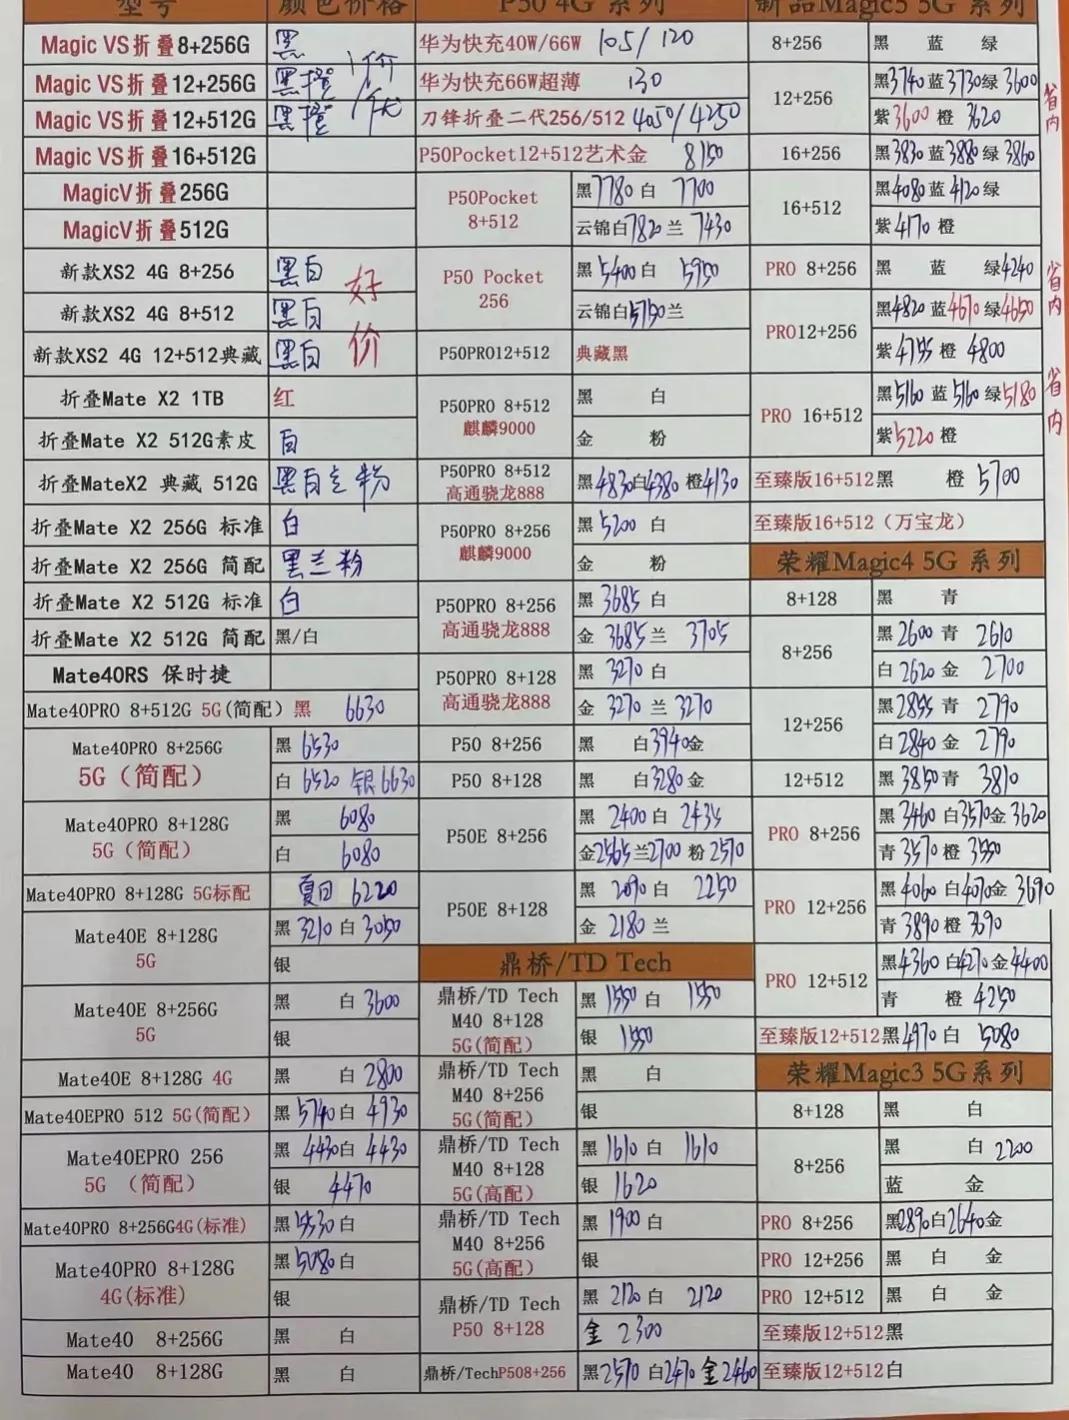 型号 颜色价格
Magic VS折叠8+256G 黑
Magic VS折叠12+256G 黑橙
Magic VS折叠12+512G 黑橙
Magic VS折叠16+512G
MagicV折叠256G
MagicV折叠512G
新款XS2 4G 8+256 黑白
新款XS2 4G 8+512 黑白
好价
新款XS2 4G 12+512典藏 黑白
折叠Mate X2 1TB 红
折叠Mate X2 512G素皮 白
折叠MateX2 典藏 512G 黑白兰粉
折叠Mate X2 256G 标准 白
折叠Mate X2 256G 简配 黑兰粉
折叠Mate X2 512G 标准 白
折叠Mate X2 512G 简配 黑/白
Mate40RS 保时捷
Mate40PRO 8+512G 5G(简配) 黑 6630
Mate40PRO 8+256G
5G（简配）
黑 6530
白 6520 银 6630
Mate40PRO 8+128G
5G（简配）
黑 6080
白 6080
Mate40PRO 8+128G 5G标配 夏日 6220
Mate40E 8+128G
5G
黑 3210 白 3050
银
Mate40E 8+256G
5G
黑 白 3600
银
Mate40E 8+128G 4G 黑 白 2800
Mate40EPRO 512 5G(简配) 黑 5740 白 4930
Mate40EPRO 256
5G （简配）
黑 4430 白 4430
银 4470
Mate40PRO 8+256G4G(标准) 黑 5530 白
Mate40PRO 8+128G
4G(标准)
黑 5080 白
银
Mate40 8+256G 黑 白
Mate40 8+128G 黑 白
P50 4G 系列
华为快充40W/66W 105/120
华为快充66W超薄 130
刀锋折叠二代256/512 4050/4250
P50Pocket12+512艺术金 8150
P50Pocket
8+512
黑 7780 白 7700
云锦白 7820 兰 7430
P50 Pocket
256
黑 5400 白 5950
云锦白 5750 兰
P50PRO12+512 典藏黑
P50PRO 8+512
麒麟9000
黑 白
金 粉
P50PRO 8+512
高通骁龙888
黑 4830 白 4380 橙 4130
P50PRO 8+256
麒麟9000
黑 5200 白
金 粉
P50PRO 8+256
高通骁龙888
黑 3685 白
金 3685 兰 3705
P50PRO 8+128
高通骁龙888
黑 3270 白
金 3270 兰 3270
P50 8+256 黑 白 3940 金
P50 8+128 黑 白 3280 金
P50E 8+256
黑 2400 白 2435
金 2565 兰 2700 粉 2570
P50E 8+128
黑 2090 白 2250
金 2180 兰
鼎桥/TD Tech
鼎桥/TD Tech
M40 8+128
5G(简配)
黑 1550 白 1550
银 1550
鼎桥/TD Tech
M40 8+256
5G(简配)
黑 白
银
鼎桥/TD Tech
M40 8+128
5G(高配)
黑 1610 白 1610
银 1620
鼎桥/TD Tech
M40 8+256
5G(高配)
黑 1900 白
银
鼎桥/TD Tech
P50 8+128
黑 2120 白 2120
金 2300
鼎桥/TechP508+256 黑 2570 白 2470 金 2460
新品Magic5 5G 系列
8+256 黑 蓝 绿
12+256
黑 3740 蓝 3730 绿 3600
紫 3600 橙 3620
省内
16+256 黑 3830 蓝 3880 绿 3860
16+512
黑 4080 蓝 4120 绿
紫 4170 橙
PRO 8+256 黑 蓝 绿 4240
PRO12+256
黑 4820 蓝 4670 绿 4650
紫 4755 橙 4800
省内
PRO 16+512
黑 5160 蓝 5160 绿 5180
紫 5220 橙
省内
至臻版16+512 黑 橙 5700
至臻版16+512（万宝龙）
荣耀Magic4 5G 系列
8+128 黑 青
8+256
黑 2600 青 2610
白 2620 金 2700
12+256
黑 2855 青 2790
白 2840 金 2790
12+512 黑 3850 青 3810
PRO 8+256
黑 3460 白 3570 金 3620
青 3570 橙 3550
PRO 12+256
黑 4060 白 4070 金 3690
青 3890 橙 3690
PRO 12+512
黑 4360 白 4270 金 4400
青 橙 4250
至臻版12+512 黑 4970 白 5080
荣耀Magic3 5G系列
8+128 黑 白
8+256
黑 白 2200
蓝 金
PRO 8+256 黑 2890 白 2640 金
PRO 12+256 黑 白 金
PRO 12+512 黑 白 金
至臻版12+512黑
至臻版12+512白